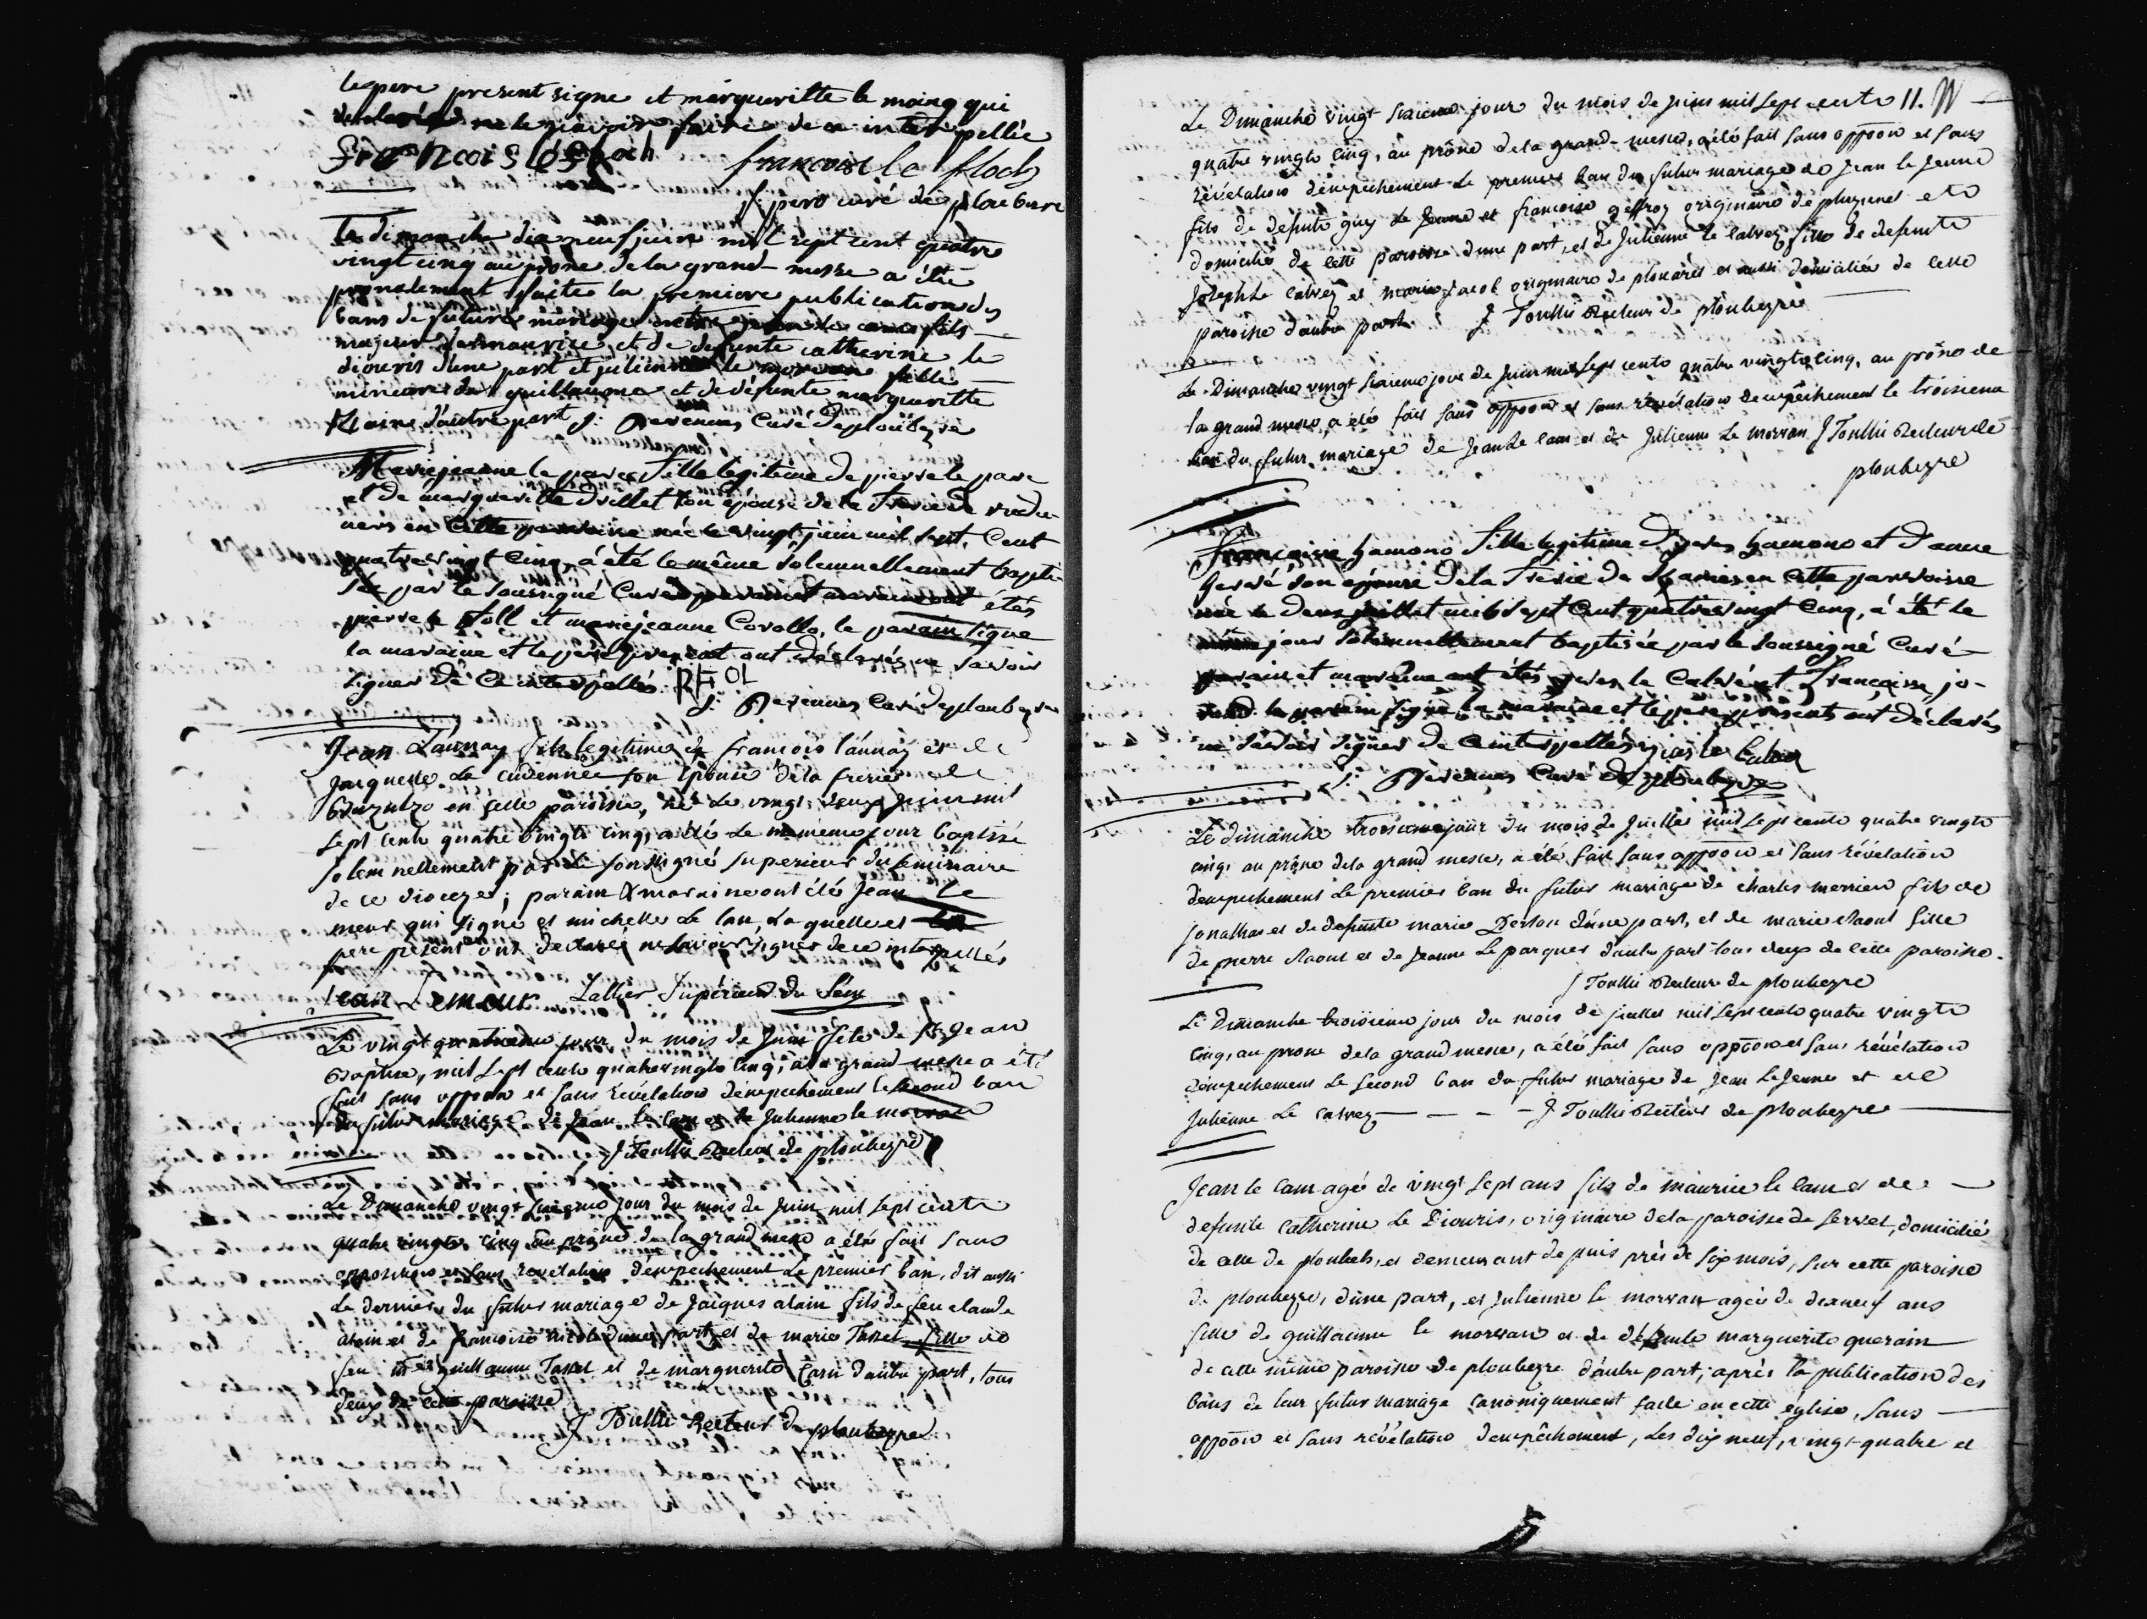 le pere present signe et margueritte le moing qui
ne le sçavoir faire de ce interpellée
francois le floch
francois le floch
curé de ploubezre
Le dimanche dix neuf juin mil sept cent quatre
vingt cinq au prone de la grand messe a été
faite la premiere publication des
bans de futur mariage entre jean le cam fils
majeur de maurice et de defunte catherine le
diouris d'une part et julienne le morvan fille
mineure de guillaume et de défunte margueritte
d'autre part J: Curé de ploubezre
Marie jeanne le pare fille legitime de pierre le pare
et de marguerite son épouse de la Frerie de
en cette paroisse née le vingt juin mil sept Cent
quatre vingt Cinq, a été le même solemnellement bapti-
sée par le soussigné Curé parain et maraine ont étés
pierre le foll et marie jeanne Corollo, le parain signe
la maraine et le pere present ont déclarés ne savoir
signer de ce interpellés
J: Curé de ploubezre
Jean Launay fils legitime de francois launay et de
jacquette Le son epouse de la frerie de
en cette paroisse, né le vingt deux juin mil
sept cents quatre vingts cinq, a été le meme jour baptisé
solemnellement par le soussigné superieur du seminaire
de ce diocezes; parain & maraine ont été Jean le
meur qui signe et michelle le lan, laquelle et le
pere present ont declarés ne savoir signer de ce interpellés
jean Lemeur Lallier Supérieur du Sém
Le vingt quatrieme jour du mois de Juin fete de St Jean
Baptise, mil sept cents quatre vingts cinq, a la grand messe a été
fait sans oppoon et sans revélation d'empechement le second ban
du futur mariage de Jean le cam et de Julienne le morvan
J Toullic Recteur de ploubezre
Le Dimanche vingt sixieme jour du mois de Juin mil sept cents
quatre vingts cinq au prone de la grand messe a été fait sans
opposition et sans revelation d'empechement Le premier ban, dit aussi
Le dernier, du futur mariage de Jacques alain fils de feu claude
alain et de francoise nicol d'une part, et de marie Tassel fille de
feu guillaume Tassel et de marguerite d'autre part, tous
deux de cette paroisse
J Toullic Recteur de ploubezre
Le Dimanche vingt sixieme jour du mois de juin mil sept cents 11.
quatre vingts cinq, au prône de la grand-messe, a été fait sans oppoon et sans
révélation d'empechement Le premier ban du futur mariage de Jean le Jeune
fils de defunts guy le Jeune et francoise geffroy originaire de pluzunet et
domicilié de cette paroisse d'une part, et de Julienne le calvez fille de defunts
Joseph Le calvez et marie jacob originaire de plouaret et aussi domiciliée de cette
paroisse d'autre part J Toullic Recteur de ploubezre
Le Dimanche vingt sixieme jour de juin mil sept cents quatre vingts cinq, au prône de
la grand messe, a été fait sans oppoon et sans révélation d'empêchement le troisieme
ban du futur mariage de Jean Le cam et de Julienne Le morvan J Toullic Recteur de
ploubezre
Françoise hamono fille legitime d'yves hamono et d'anne
son epouse de la Frerie de en cette paroisse
née le deux juillet mil sept Cent quatre vingt Cinq, a été le
même jour solemnellement baptisée par le soussigné Curé
parain et maraine ont étés yves le Calvé et Françoise jo-
le parain signe la maraine et le pere présents ont déclarés
ne savoir signer de ce interpellés
J: Curé de ploubezre
Le dimanche troisieme jour du mois de Juillet mil sept cents quatre vingts
cinq, au prône de la grand messe, a été fait sans oppoon et sans révélation
d'empechement Le premier ban du futur mariage de charles merrien fils de
jonathas et de defunte marie d'une part, et de marie Raoul fille
de pierre Raoul et de Jeanne Le parquer d'autre part tous deux de cette paroisse.
J Toullic Recteur de ploubezre
Le Dimanche troisieme jour du mois de juillet mil sept cents quatre vingts
cinq, au prone de la grand messe, a été fait sans oppoon et sans révélation
d'empechement Le second ban du futur mariage de Jean Le Jeune et de
Julienne Le calvez - - - J Toullic Recteur de ploubezre
Jean le cam agé de vingt sept ans fils de maurice le cam et de
defunte catherine Le Diouris, originaire de la paroisse de servel, domicilié
de celle de et demeurant depuis près de six mois, sur cette paroisse
de ploubezre, d'une part, et Julienne le morvan agée de dixneuf ans
fille de guillaume le morvan et de défunte marguerite querain
de cette même paroisse de ploubezre d'autre part; après la publication des
bans de leur futur mariage canoniquement faite en cette eglise, sans
oppoon et sans révélation d'empêchement, Les dix neuf, vingt-quatre et